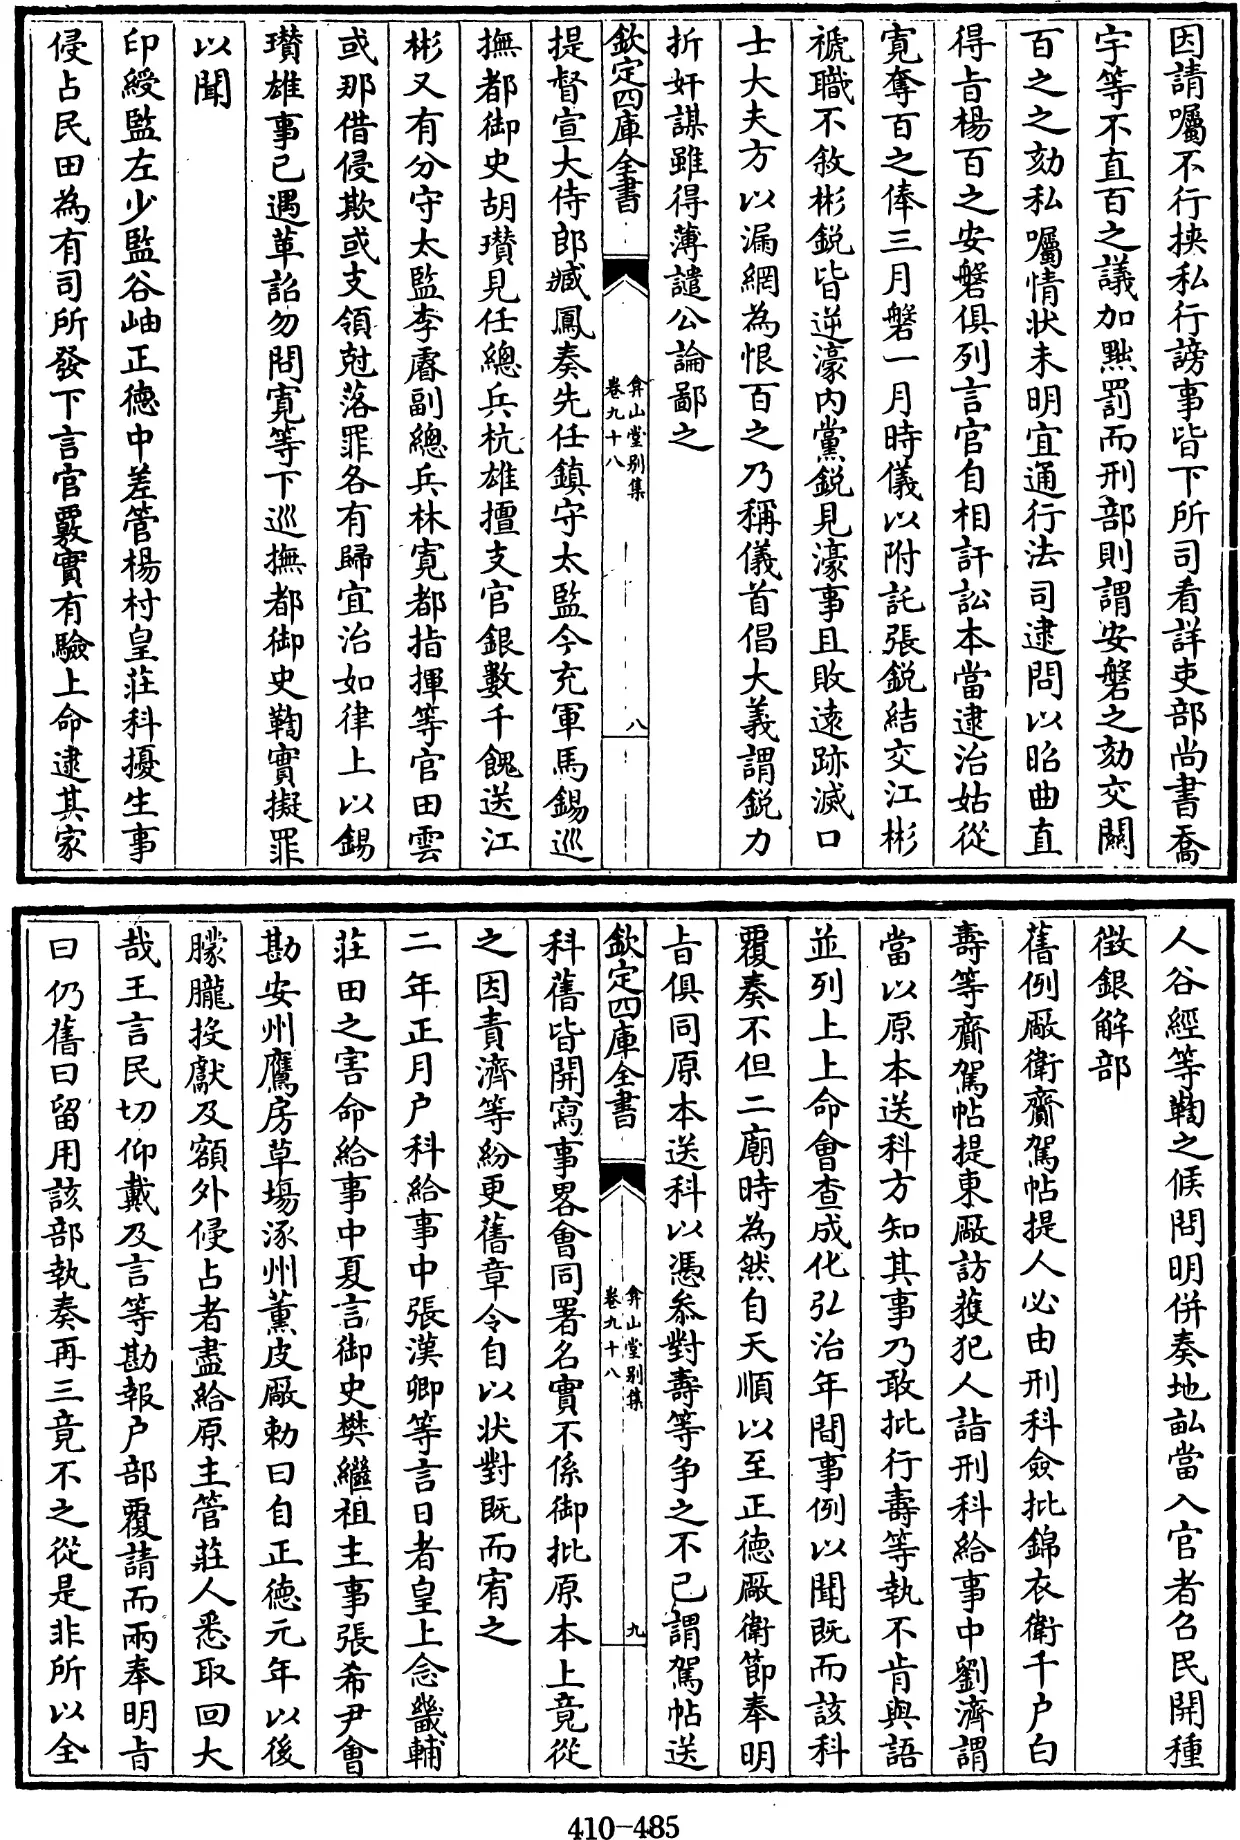 因請囑不行挾私行謗事皆下所司看詳吏部尚書喬
宇等不直百之議加㸃罰而刑部則謂安磐之劾交關
百之之劾私囑情狀未明宜通行法司逮問以昭曲直
得㫖楊百之安磐俱列言官自相訐訟本當逮治姑從
寛奪百之俸三月磐一月時儀以附託張鋭結交江彬
褫職不敘彬鋭皆逆濠内黨鋭見濠事且敗遠跡滅口
士大夫方以漏網為恨百之乃稱儀首倡大義謂鋭力
折奸謀雖得薄譴公論鄙之
欽定四庫全書
弇山堂别集
卷九十八
八
提督宣大侍郎臧鳳奏先任鎮守太監今充軍馬錫巡
撫都御史胡瓚見任總兵杭雄擅支官銀數千餽送江
彬又有分守太監李睿副總兵林寛都指揮等官田雲
或那借侵欺或支領尅落罪各有歸宜治如律上以錫
瓚雄事已遇革詔勿問寛等下巡撫都御史鞫實擬罪
以聞
印綬監左少監谷岫正德中差管楊村皇莊科擾生事
侵占民田為有司所發下言官覈實有驗上命逮其家
人谷經等鞫之候問明併奏地畝當入官者召民開種
徴銀解部
舊例厰衛齎駕帖提人必由刑科僉批錦衣衛千户白
壽等齎駕帖提東厰訪獲犯人詣刑科給事中劉濟謂
當以原本送科方知其事乃敢批行壽等執不肯與語
並列上上命會查成化弘治年間事例以聞既而該科
覆奏不但二廟時為然自天順以至正德厰衛節奉明
㫖俱同原本送科以憑叅對壽等争之不已謂駕帖送
欽定四庫全書
弇山堂别集
卷九十八
九
科舊皆開寫事畧會同署名實不係御批原本上竟從
之因責濟等紛更舊章令自以狀對既而宥之
二年正月户科給事中張漢卿等言日者皇上念畿輔
莊田之害命給事中夏言御史樊繼祖主事張希尹會
勘安州鷹房草塲涿州薰皮厰勅曰自正德元年以後
朦朧投獻及額外侵占者盡給原主管莊人悉取回大
哉王言民切仰戴及言等勘報户部覆請而兩奉明㫖
曰仍舊曰留用該部執奏再三竟不之從是非所以全
410-485